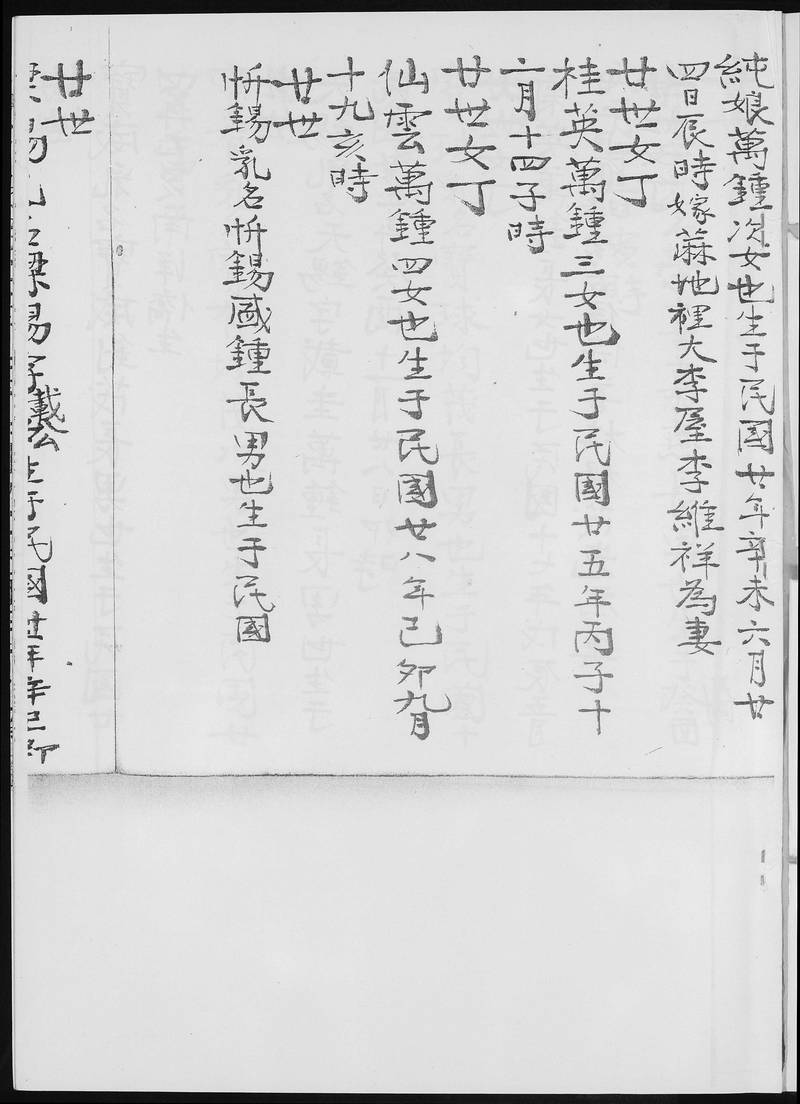 純娘萬鍾次女也生于民國廿年辛未六月廿
四日辰時嫁蔴地裡大李屋李維祥為妻
廿世女丁
桂英萬鍾三女也生于民國廿五年丙子十
二月十四子時
廿世女丁
仙雲萬鍾四女也生于民國廿八年己卯九月
十九亥時
廿世
忻錫乳名忻錫國鍾長男也生于民國
廿世
錫乳名樑錫字載公生于民國廿年己卯